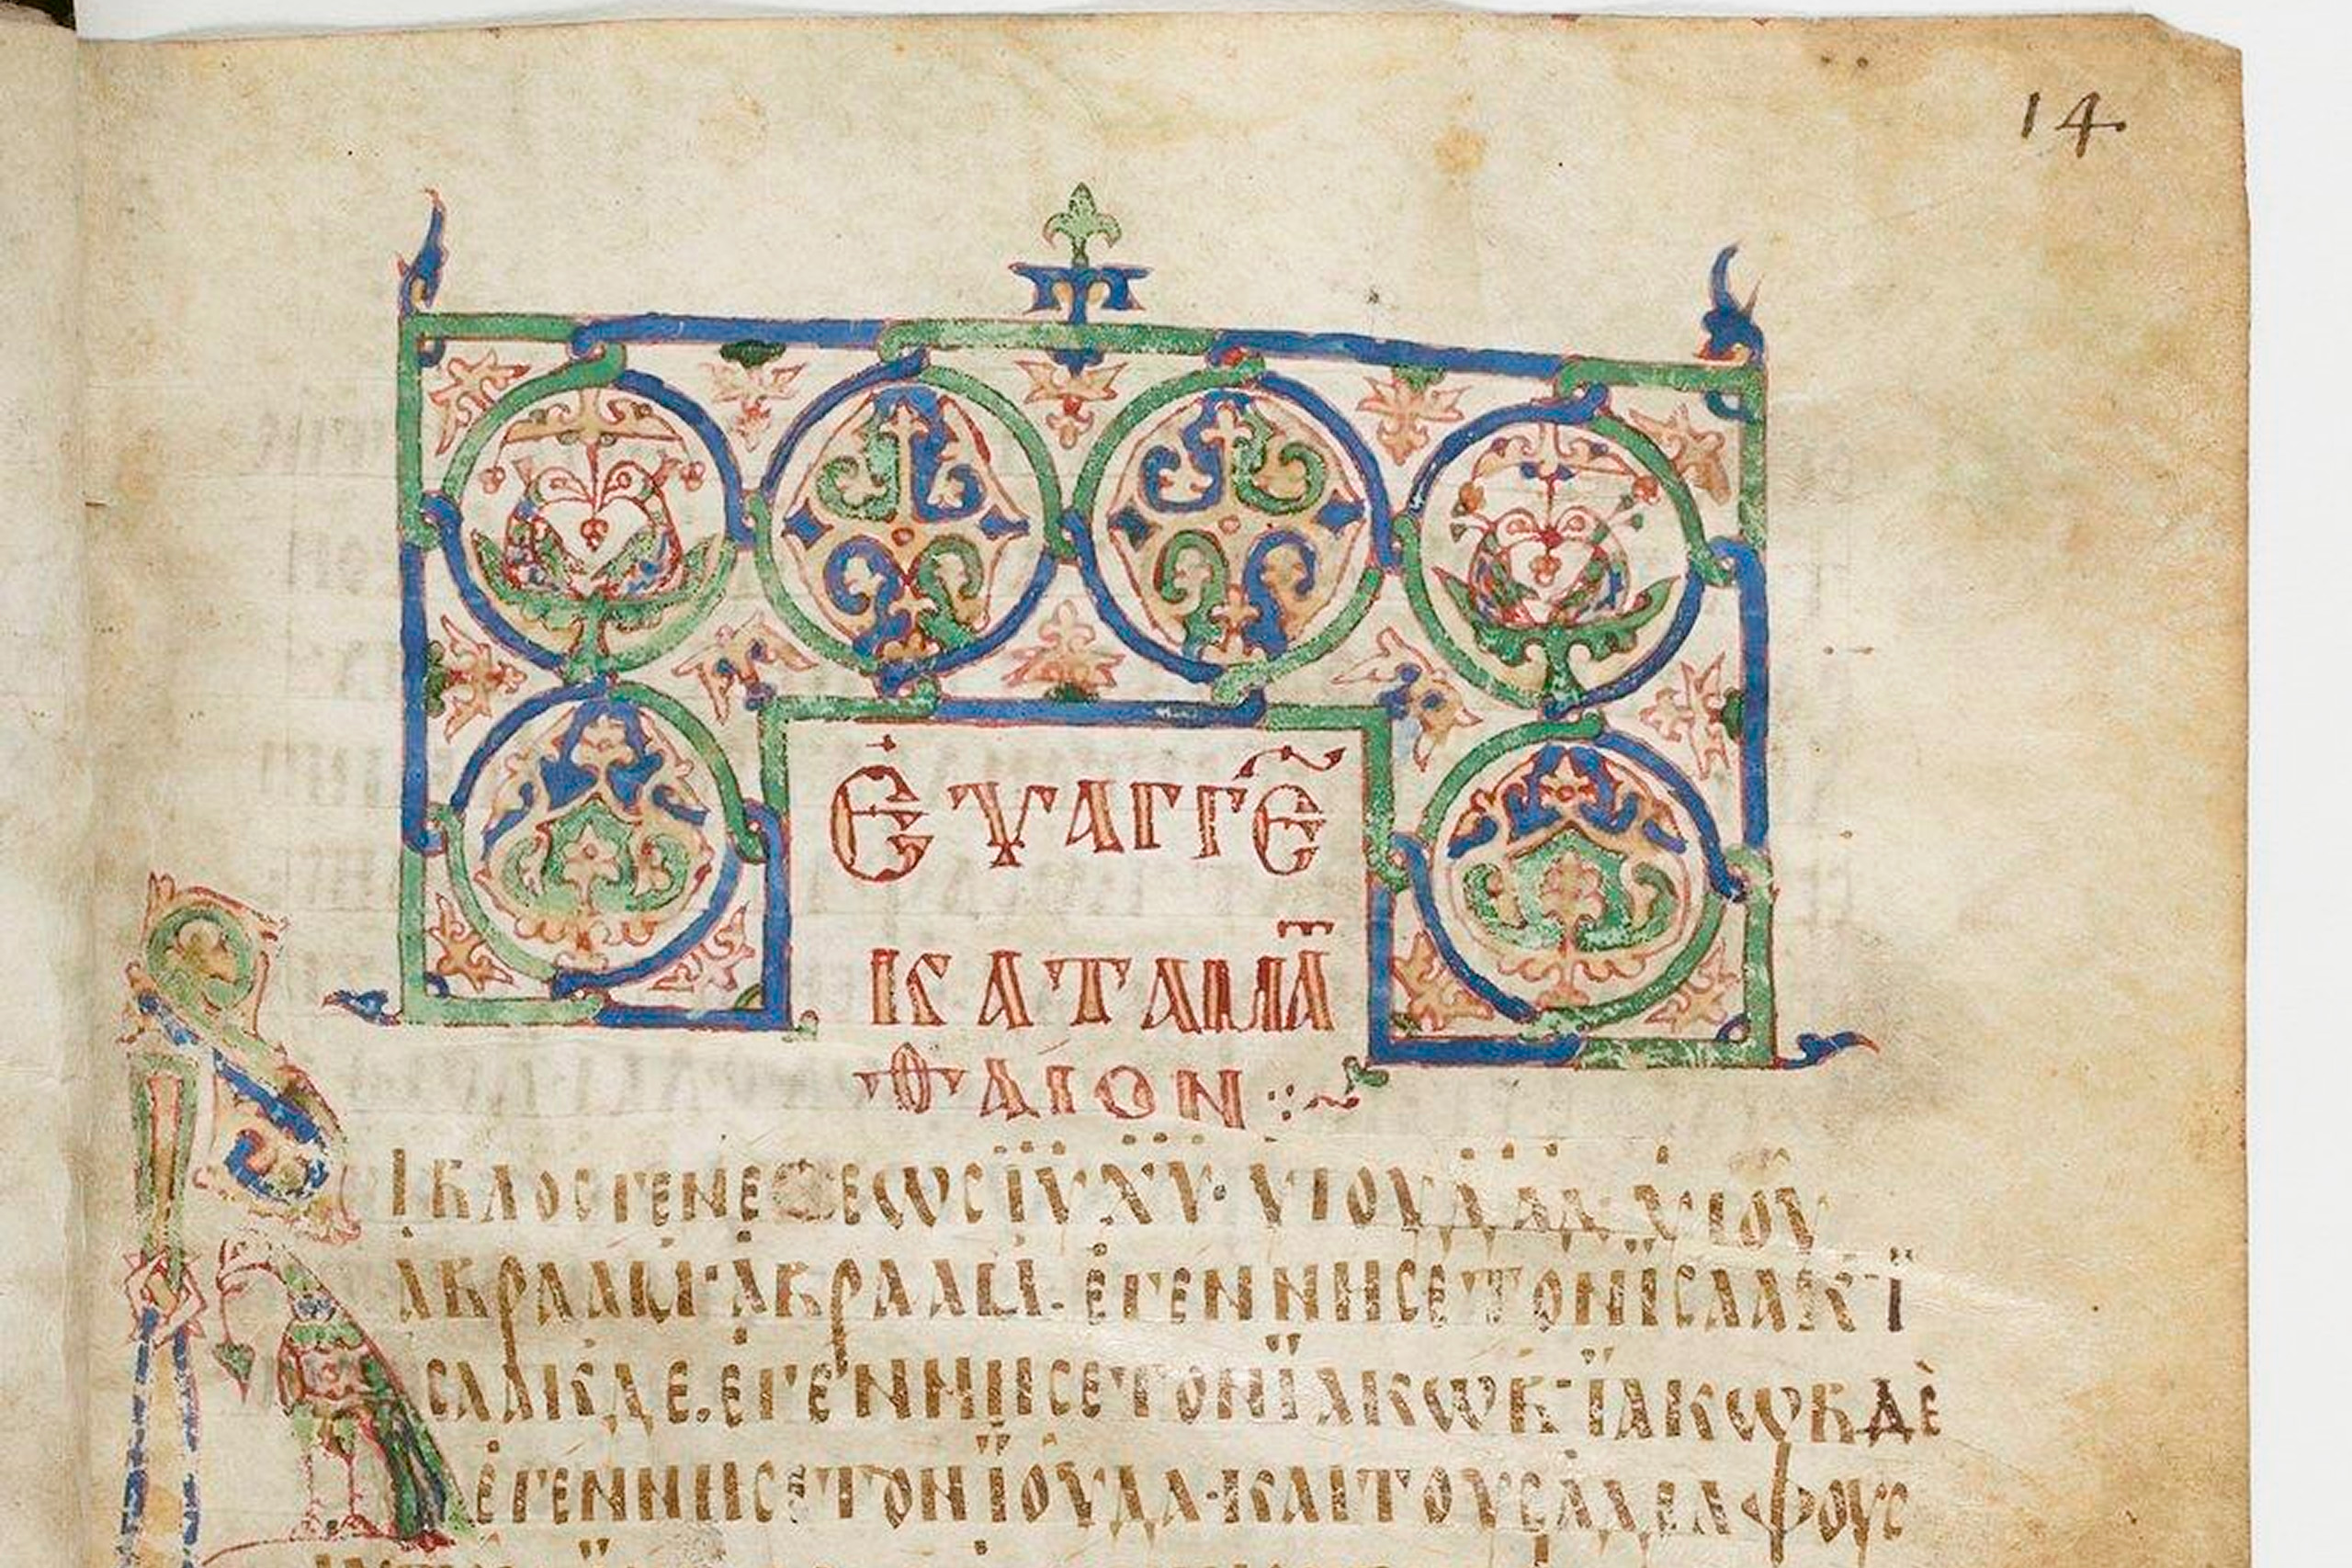 14
ΕΥΑΓΓΕ̃
ΚΑΤΑΜΑ̅
ΘΑΙΟΝ
ΙΒΛΟϹΓΕΝΕϹΕωϹ ΙΥ ΧΥ· ΥΙΟΥ ΔΑΔ· ΥΙΟΥ
ΑΒΡΑΑΜ· ΑΒΡΑΑΜ· ΕΓΕΝΝΗϹΕ ΤΟΝ ΙϹΑΑΚ· Ϊ
ϹΑΑΚ ΔΕ. ΕΓΕΝΝΗϹΕ ΤΟΝ ΪΑΚωΒ· ΪΑΚωΒ ΔΕ
ΕΓΕΝΝΗϹΕ ΤΟΝ ΪΟΥΔΑ· ΚΑΙ ΤΟΥϹ ΑΔΕΛΦΟΥϹ